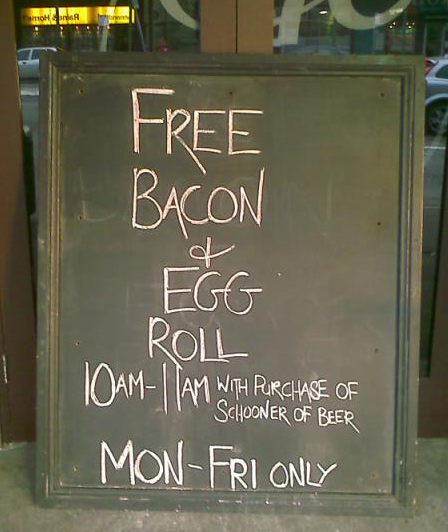 FREE
BACON
&
EGG
ROLL
10AM-11AM WITH PURCHASE OF
SCHOONER OF BEER
MON-FRI ONLY